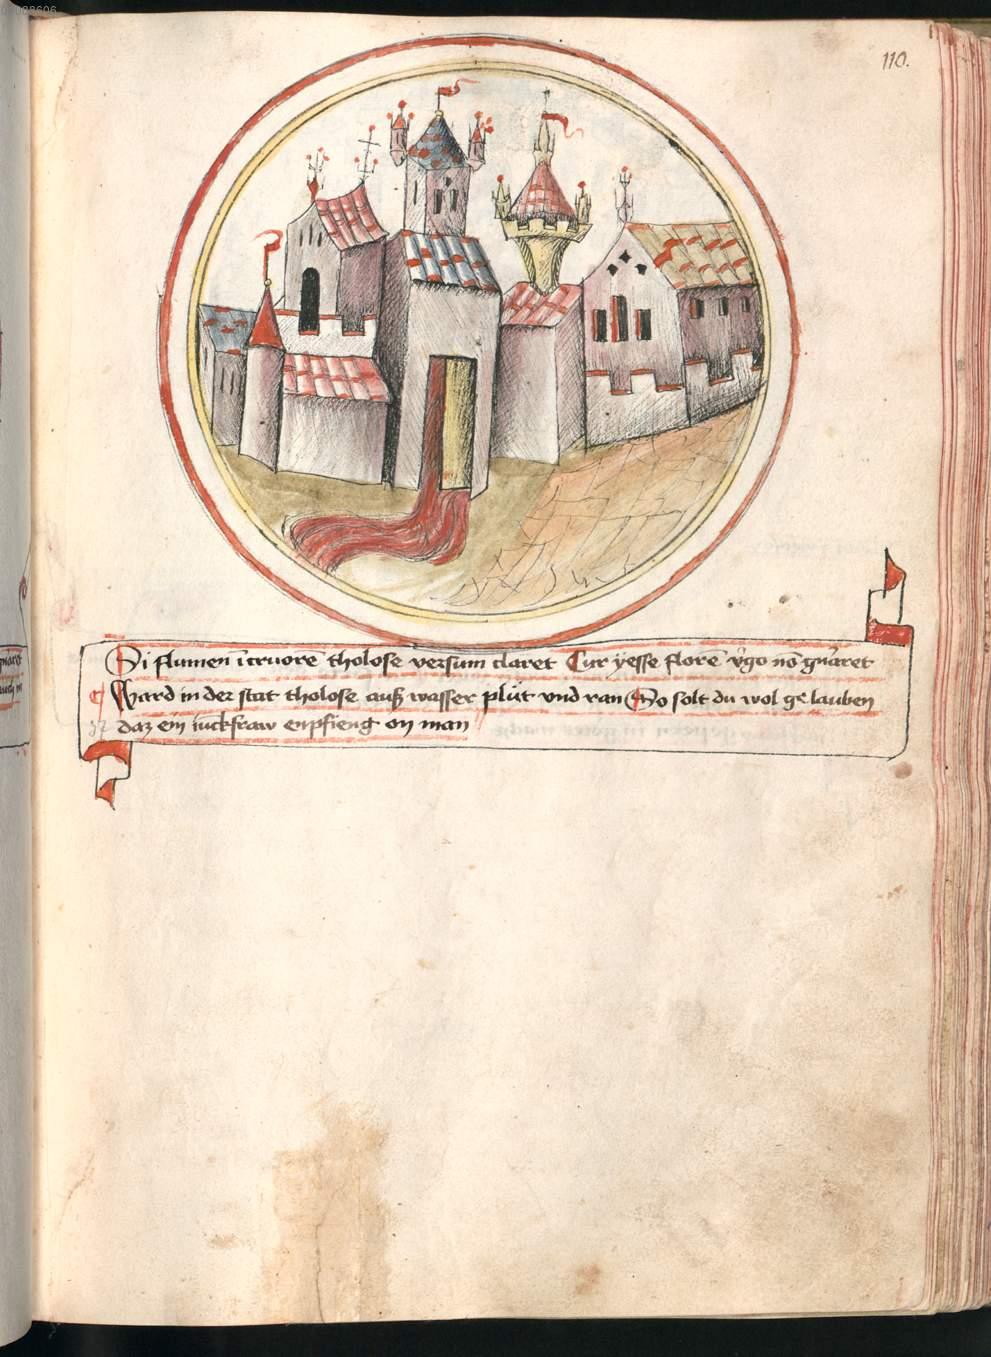 110.
Si flumen ī cruorē tholose versum claret Cur yesse florē v̓go nō gn̓aret
Ward in der stat tholose auß wasser plüt vnd ran So solt du wol gelauben
daz ein iūckfraw enpfieng on man